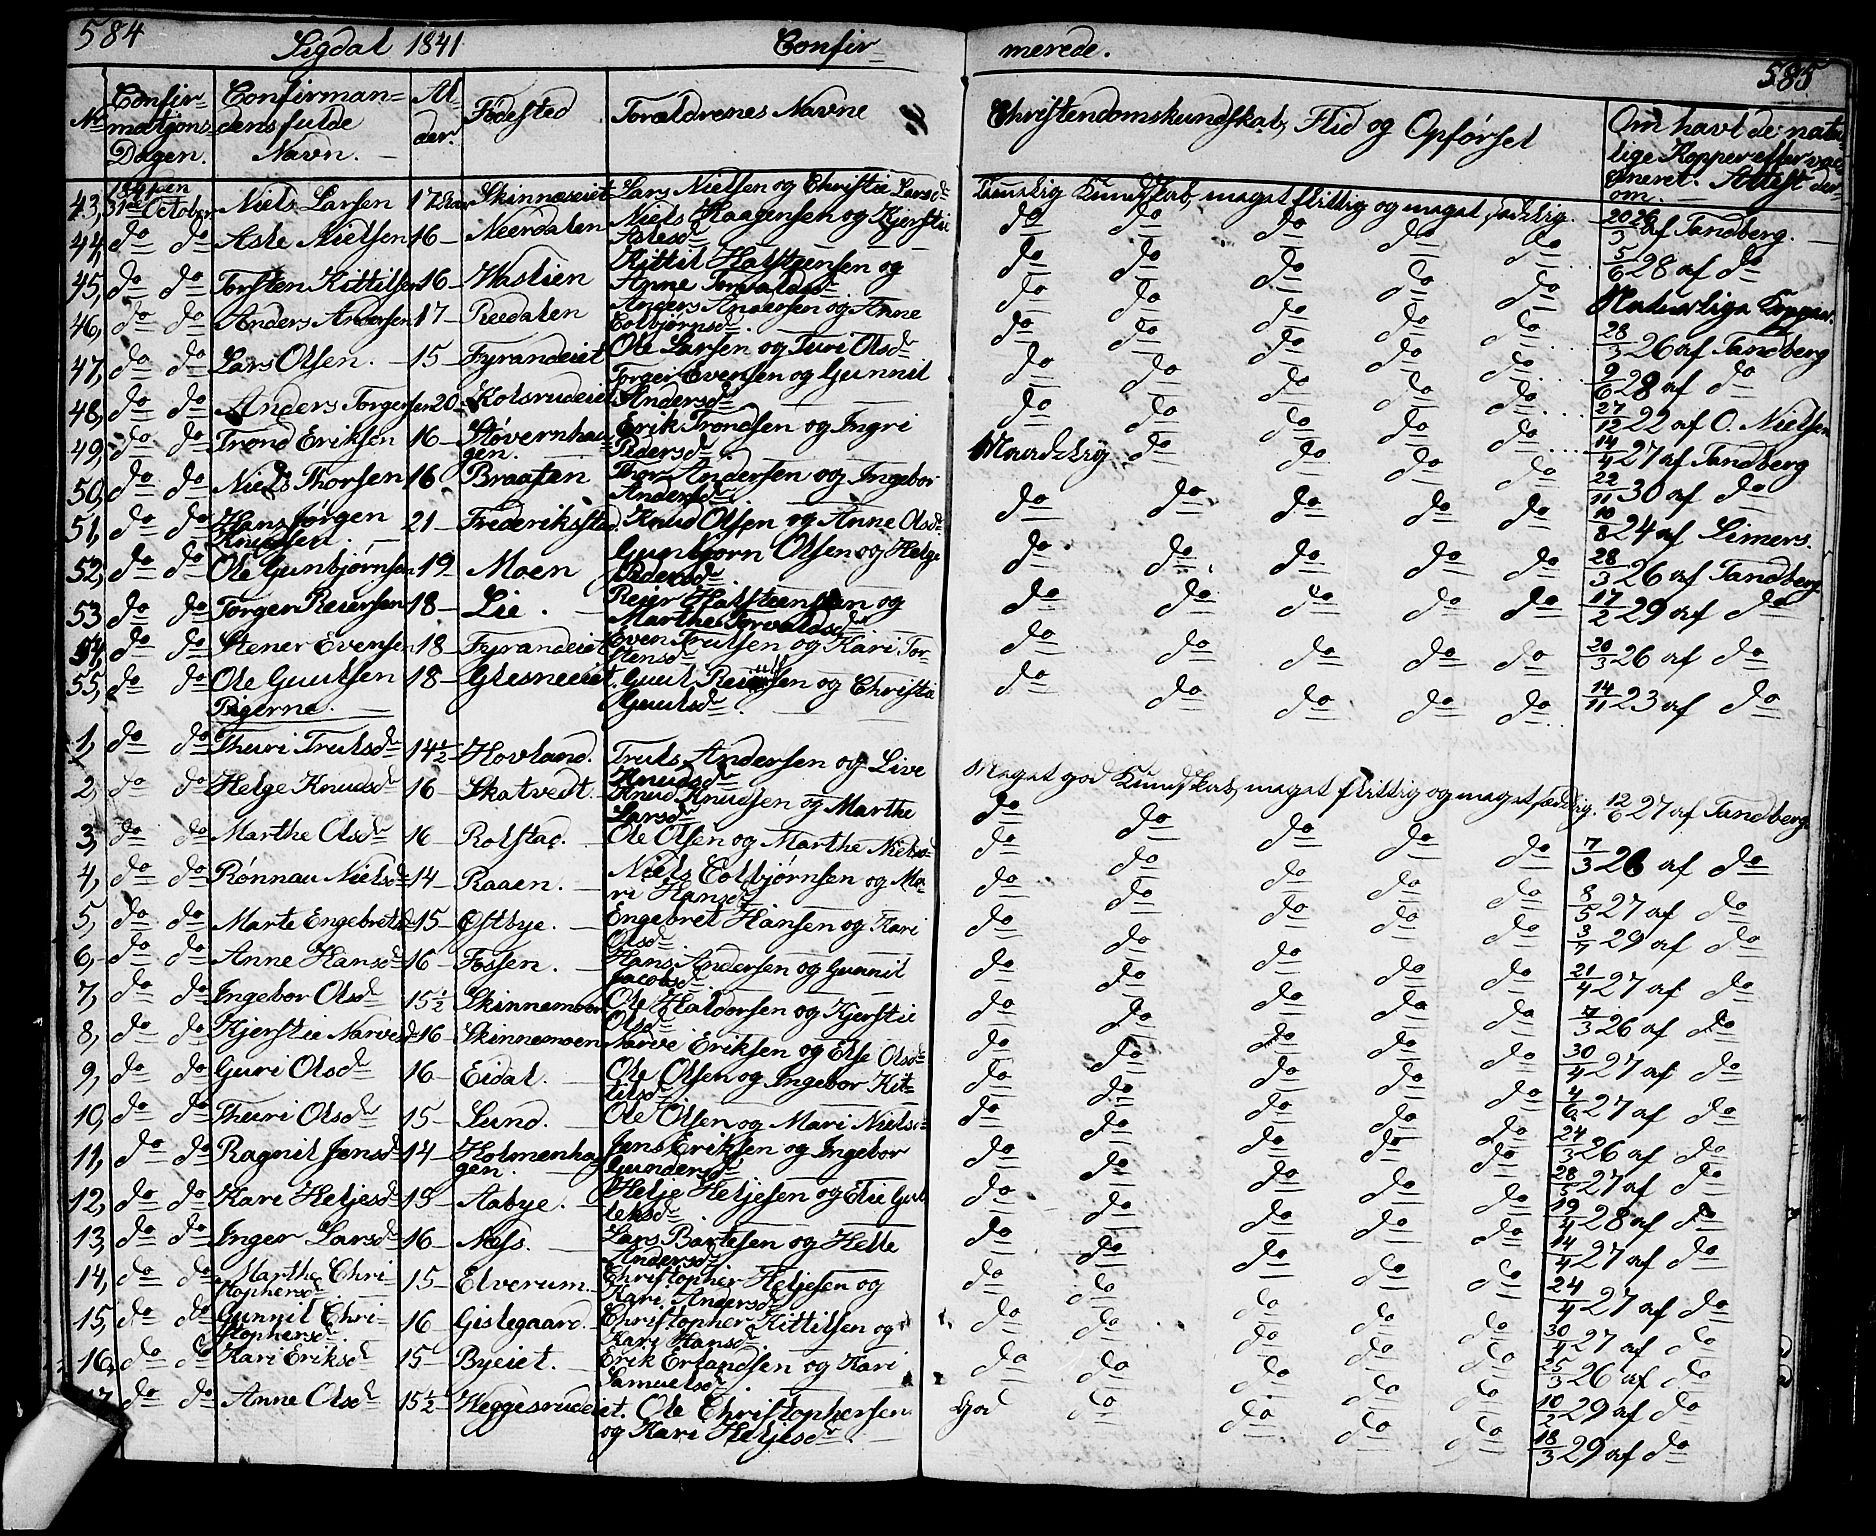 584
Sigdal 1841
Confir-
merede.
585
No
Confir-
mations
Dagen.
Confirman-
dens fulde
Navn.
Al-
der.
Fødested
Forældrenes Navne
Christendomskundskab, Flid og Opførsel
Om havt de natur-
lige Kopper eller vac-
cineret. Attest der-
om.
43, 31 October Niels Larsen 17 Skinneseiet Lars Nielsen og Christie Larsd Kundskab, meget flittig og meget sædelig. 26 af Tandberg.
44, do do Asle Nielsen 16 - Neerdalen Niels Haagensen og Kjerstie
Aslesd do do do do do 5/6 28 af do
45, do do Torsten Kittilsen 16 - Hastien Kittil Halsteensen og
Anne Torvaldsd do do do do do Naturlige Kopper.
46, do do Anders Andersen 17 - Reedalen Anders Andersen og Anne
Colbjørnsd do do do do do 28/3 26 af Tandberg
47, do do Lars Olsen. - 15 - Fyrandeiet Ole Larsen og Turi Olsd do do do do do 9/6 28 af do
48, do do Anders Torgersen 20 - Kolsrudeiet Torger Evensen og Gunnil
Andersd do do do do do 27/12 22 af O. Nielsen
49, do do Trond Eriksen 16 - Støvernhau-
gen. Erik Trondsen og Ingri
Pedersd do do do do do 14/4 27 af Tandberg
50, do do Niels Thorsen 16 Braaten Thor Andersen og Ingebor
Andersd Maadelig do do do do 22/11 30 af do
51, do do Hans Jørgen
Knudsen. 21 - Frederikstad. Knud Olsen og Anne Olsd do do do do do 10/8 24 af Simers.
52, do do Ole Gunbjørnsen 19 Moen Gunbjørn Olsen og Helge
Pedersd do do do do do 28/3 26 af Tandberg
53 do do Torger Reiersen 18 - Lie. Reier Halsteensen og
Marthe Torvaldsd do do do do do 17/2 29 af do
54, do do Stener Evensen 18 - Fyrandeiet Even Trulsen og Kari Tor-
stensd do do do do do 20/3 26 af do
55, do do Ole Guulsen 18 - Glesneeiet. Guul Reiersen og Christie
Guulsd do do do do do 14/11 23 af do
Pigerne.
1, do do Thuri Trulsd 14½ - Hovland. Truls Andersen og Live
Knudsd Meget god Kundskab, meget flittig og meget sædelig. 12/6 27 af Tandberg
2, do do Helge Knudsd 16 - Skatvedt. Knud Knudsen og Marthe
Larsd do do do do do 7/3 26 af do
3, do do Marthe Olsd 16 - Rolstad. Ole Olsen og Marthe Nielsd do do do do do 8/5 27 af do
4, do do Rønnau Nielsd 14 - Raaen. Niels Colbjørnsen og Ma-
ri Hansd do do do do do 3/4 29 af do
5, do do Marte Engebretsd 15 - Østbye. Engebret Hansen og Kari
Olsd do do do do do 21/4 27 af do
6, do do Anne Hansd 16 - Fossen. Hans Andersen og Gunnil
Jacobsd do do do do do 7/3 26 af do
7, do do Ingebor Olsd 15½ Skinnemoen Ole Haldorsen og Kjerstie
Olsd do do do do do 30/4 27 af do
8, do do Kjerstie Narvesd 16 - Skinnemoen Narve Eriksen og Else Olsd do do do do do 4/6 27 af do
9, do do Guri Olsd 16 - Eidal. Ole Olsen og Ingebor Kit-
tilsd do do do do do 24/3 26 af do
10, do do Thuri Olsd 15 - Lund. Ole Olsen og Mari Nielsd do do do do do 28/5 27 af do
11, do do Ragnil Jensd 14 - Holmenhau
gen. Jens Eriksen og Ingebor
Gundersd do do do do do 19/4 28 af do
12, do do Kari Heljesd 15 - Aabye. Helje Heljesen og Elie Gul-
leksd do do do do do 14/4 27 af do
13, do do Inger Larsd 16 - Næss. Lars Bartesen og Helle
Andersd do do do do do 24/4 27 af do
14, do do Marthe Chri-
stophersd 15 - Elverum. Christopher Heljesen og
Kari Andersd do do do do do 30/4 27 af do
15, do do Gunnil Chri-
stophersd 16 Gislegaard. Christopher Kittilsen og
Kari Hansd do do do do do 25/3 26 af do
16, do do Kari Eriksd 15 - Byeiet. Erik Erlandsen og Kari
Samuelsd do do do do do 10/2 29 af do
17, do do Anne Olsd 15½ Heggesrudeiet. Ole Christophersen
og Kari Heljesd God do do do do 18/3 29 af do